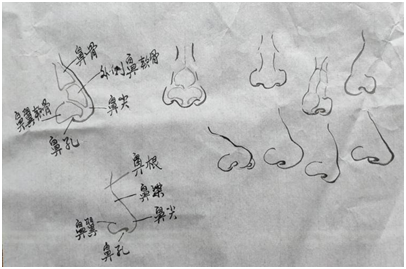 鼻骨
外侧鼻软骨
鼻翼软骨
鼻尖
鼻孔
鼻根
鼻梁
鼻翼
鼻尖
鼻孔